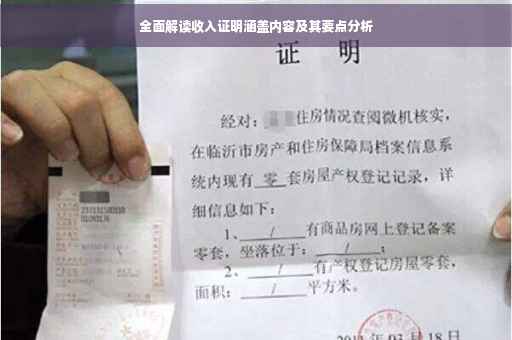 全面解读收入证明涵盖内容及其要点分析
证 明
经对：住房情况查阅微机核实，
在临沂市房产和住房保障局档案信息系
统内现有 零 套房屋产权登记记录，详
细信息如下：
1、 / 有商品房网上登记备案
零套，坐落位于： / ；
2、 / 有产权登记房屋零套，
面积： / 平方米。
月 18 日